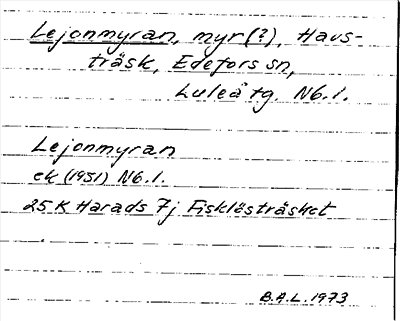 Lejonmyran, myr(?), Havs-
träsk, Edefors sn,
Luleå tg. Nb.l.
Lejonmyran
ek (1951) Nb.l.
25K Harads 7j Fisklösträsket
B.A.L. 1973